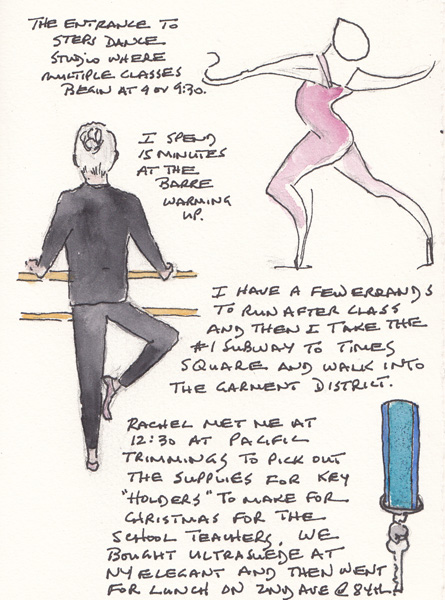 THE ENTRANCE TO
STEPS DANCE
STUDIO WHERE
MULTIPLE CLASSES
BEGIN AT 9 OR 9:30.
I SPEND
15 MINUTES
AT THE
BARRE
WARMING
UP.
I HAVE A FEW ERRANDS
TO RUN AFTER CLASS
AND THEN I TAKE THE
#1 SUBWAY TO TIMES
SQUARE AND WALK INTO
THE GARMENT DISTRICT.
RACHEL MET ME AT
12:30 AT PACIFIC
TRIMMINGS TO PICK OUT
THE SUPPLIES FOR KEY
"HOLDERS" TO MAKE FOR
CHRISTMAS FOR THE
SCHOOL TEACHERS. WE
BOUGHT ULTRASUEDE AT
NY ELEGANT AND THEN WENT
FOR LUNCH ON 2ND AVE @ 84TH.